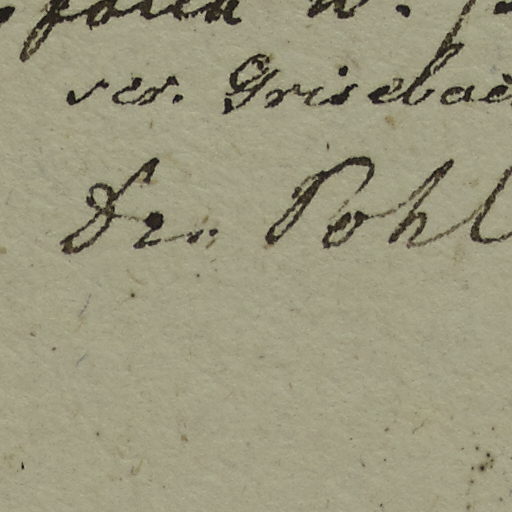 ver. Grisebac
Dr. Pohl